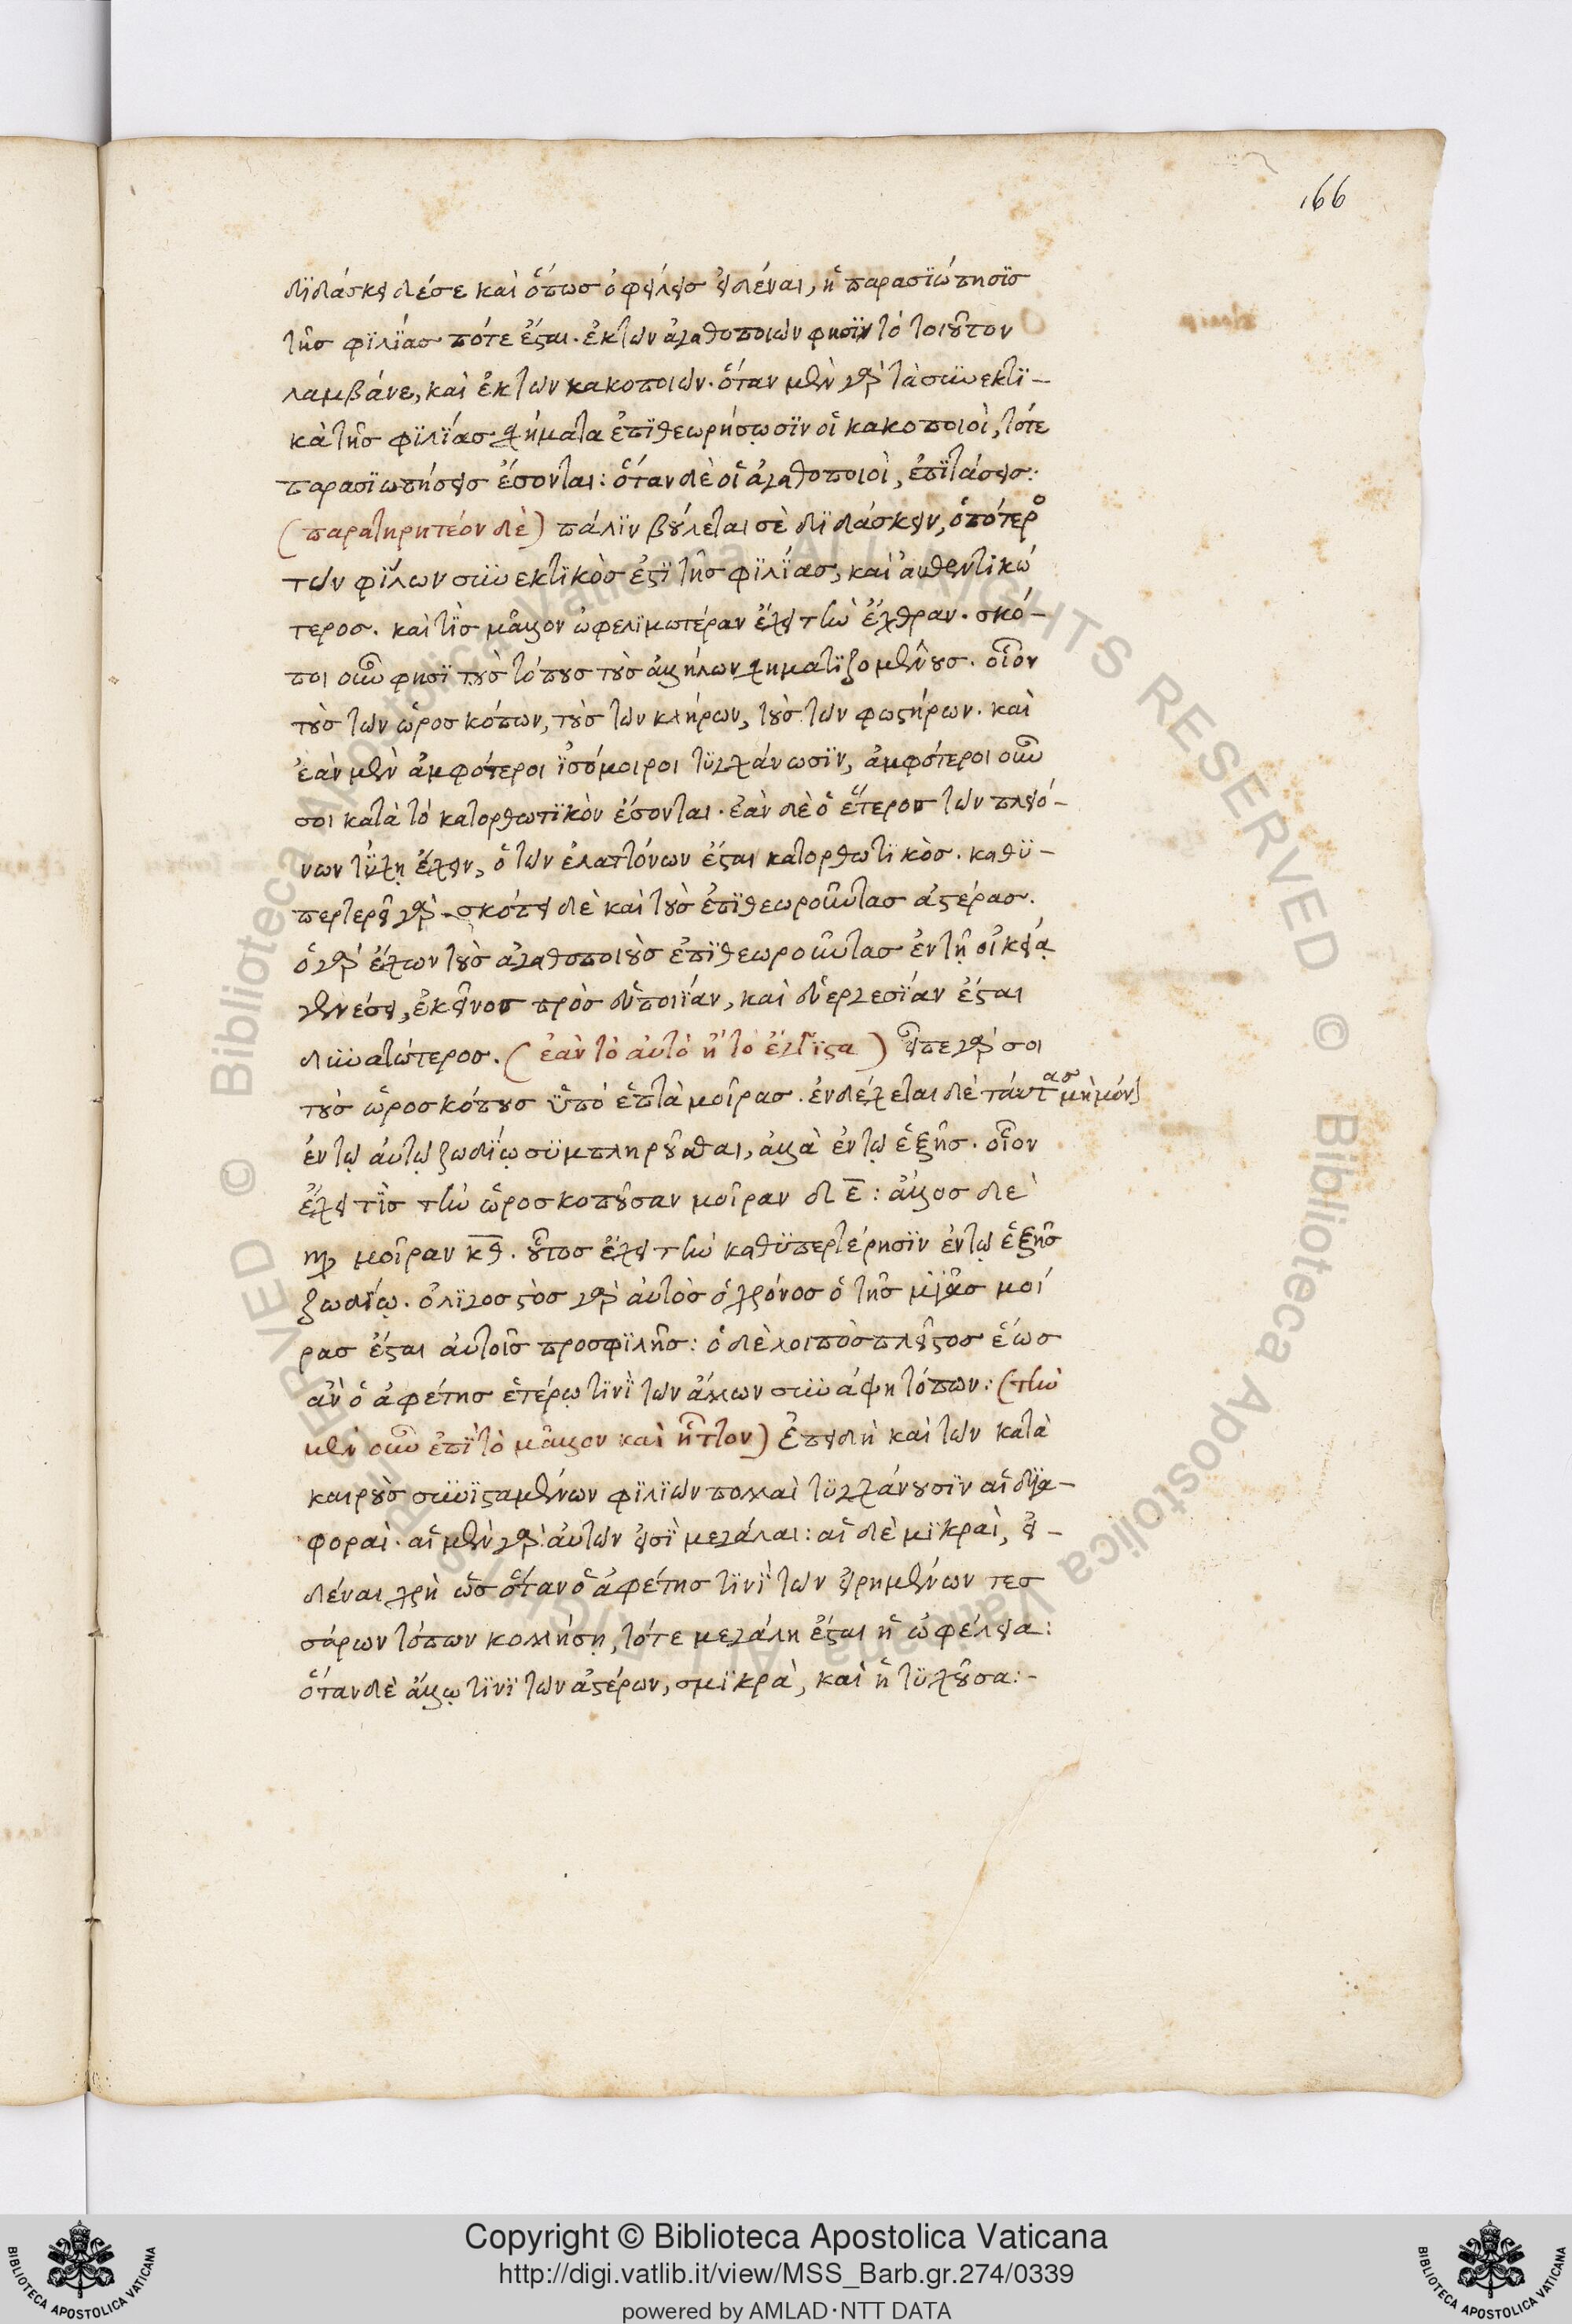 166
διδάσκει δέ σε καὶ ὅπως ὀφείλεις εἰδέναι, ἡ παρασιώπησις
τῆς φιλίας πότε ἔσται. ἐκ τῶν ἀγαθοποιῶν φησὶν τὸ τοιοῦτον
λαμβάνε, καὶ ἐκ τῶν κακοποιῶν. ὅταν μὲν γὰρ τὰ συνεκτι-
κὰ τῆς φιλίας σχήματα ἐπιθεωρήσωσιν οἱ κακοποιοὶ, τότε
παρασιωπήσεις ἔσονται: ὅταν δὲ οἱ ἀγαθοποιοὶ, ἐπιτάσεις:
(παρατηρητέον δὲ) πάλιν βούλεταί σε διδάσκειν, ὁπότερο
τῶν φίλων συνεκτικὸς ἐστὶ τῆς φιλίας, καὶ αὐθεντικώ
τερος. καὶ τὶς μᾶλλον ὠφελιμωτέραν ἔχει τὴν ἔχθραν. σκό-
πει οὖν φησὶ τοὺς τόπους τοὺς ἀλλήλων σχηματιζομένους. οἷον
τοὺς τῶν ὡροσκόπων, τοὺς τῶν κλήρων, τοὺς τῶν φωστήρων. καὶ
ἐὰν μὲν ἀμφότεροι ἰσόμοιροι τυγχάνωσιν, ἀμφότεροι οὖν
σοι κατὰ τὸ κατορθωτικὸν ἔσονται. ἐὰν δὲ ὁ ἕτερος τῶν πλειό-
νων τύχῃ ἔχειν, ὁ τῶν ἐλαττόνων ἔσται κατορθωτικὸς. καθυ-
περτερεῖ γὰρ. σκόπει δὲ καὶ τοὺς ἐπιθεωροῦντας ἀστέρας.
ὁ γὰρ ἔχων τοὺς ἀγαθοποιοὺς ἐπιθεωροῦντας ἐν τῇ οἰκείᾳ
γενέσει, ἐκεῖνος πρὸς εὐποιίαν, καὶ εὐεργεσίαν ἔσται
δυνατώτερος. (ἐὰν τὸ αὐτὸ ἢ τὸ ἔγγιστα) εἶπε γάρ σοι
τοὺς ὡροσκόπους ὑπὸ ἑπτὰ μοίρας. ἐνδέχεται δὲ ταύτας μὴ μόνον
ἐν τῷ αὐτῷ ζωδίῳ συμπληροῦσθαι, ἀλλὰ ἐν τῷ ἑξῆς. οἷον
ἔχει τὶς τὴν ὡροσκοποῦσαν μοῖραν ε̅: ἄλλος δὲ
♍ μοῖραν κ̅θ̅. οὗτος ἔχει τὴν καθυπερτέρησιν ἐν τῷ ἑξῆς
ζωδίῳ. ὀλιγοστὸς γὰρ αὐτὸς ὁ χρόνος ὁ τῆς μιᾶς μοί
ρας ἔσται αὐτοῖς προσφιλὴς: ὁ δὲ λοιπὸς πλεῖστος ἕως
ἂν ὁ ἀφέτης ἑτέρῳ τινὶ τῶν ἄλλων συνάψῃ τόπων: (τὴν
μὲν οὖν ἐπὶ τὸ μᾶλλον καὶ ἧττον) ἐπειδὴ καὶ τῶν κατὰ
καιροὺς συνισταμένων φιλιῶν πολλαὶ τυγχάνουσιν αἱ δια-
φοραὶ. αἱ μὲν γὰρ αὐτῶν εἰσὶ μεγάλαι: αἱ δὲ μικραὶ, εἰ-
δέναι χρὴ ὡς ὅταν ὁ ἀφέτης τινὶ τῶν εἰρημένων τεσ
σάρων τόπων κολλήσῃ, τότε μεγάλη ἔσται ἡ ὠφέλεια:
ὅταν δὲ ἄλλῳ τινὶ τῶν ἀστέρων, σμικρὰ, καὶ ἡ τυχοῦσα:-
Copyright © Biblioteca Apostolica Vaticana
http://digi.vatlib.it/view/MSS_Barb.gr.274/0339
powered by AMLAD·NTT DATA
BIBLIOTECA APOSTOLICA VATICANA
BIBLIOTECA APOSTOLICA VATICANA